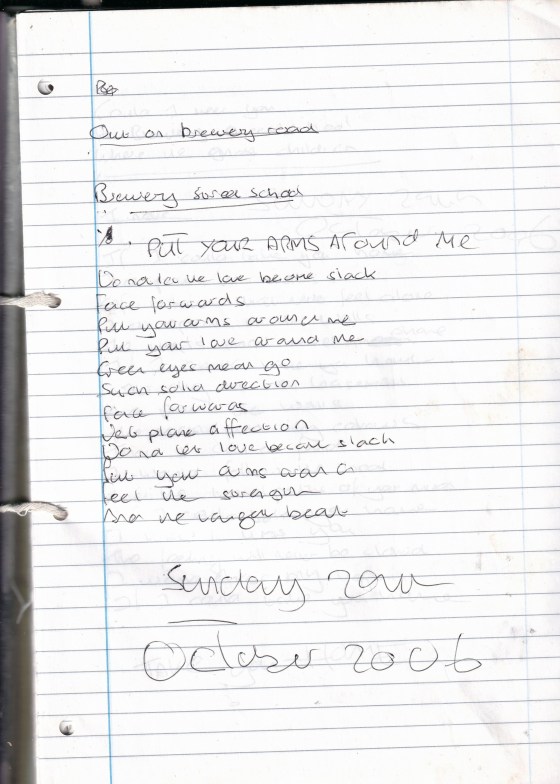 Out on brewery road
Brewery street school
PUT YOUR ARMS AROUND ME
Do not let love become slack
Face forwards
Put your arms around me
Put your love around me
Green eyes mean go
Such solid direction
Face forwards
Jet plane affection
Do not let love become slack
Put your arms around
Feel the strength
And the longer beat
Sunday
October 2006